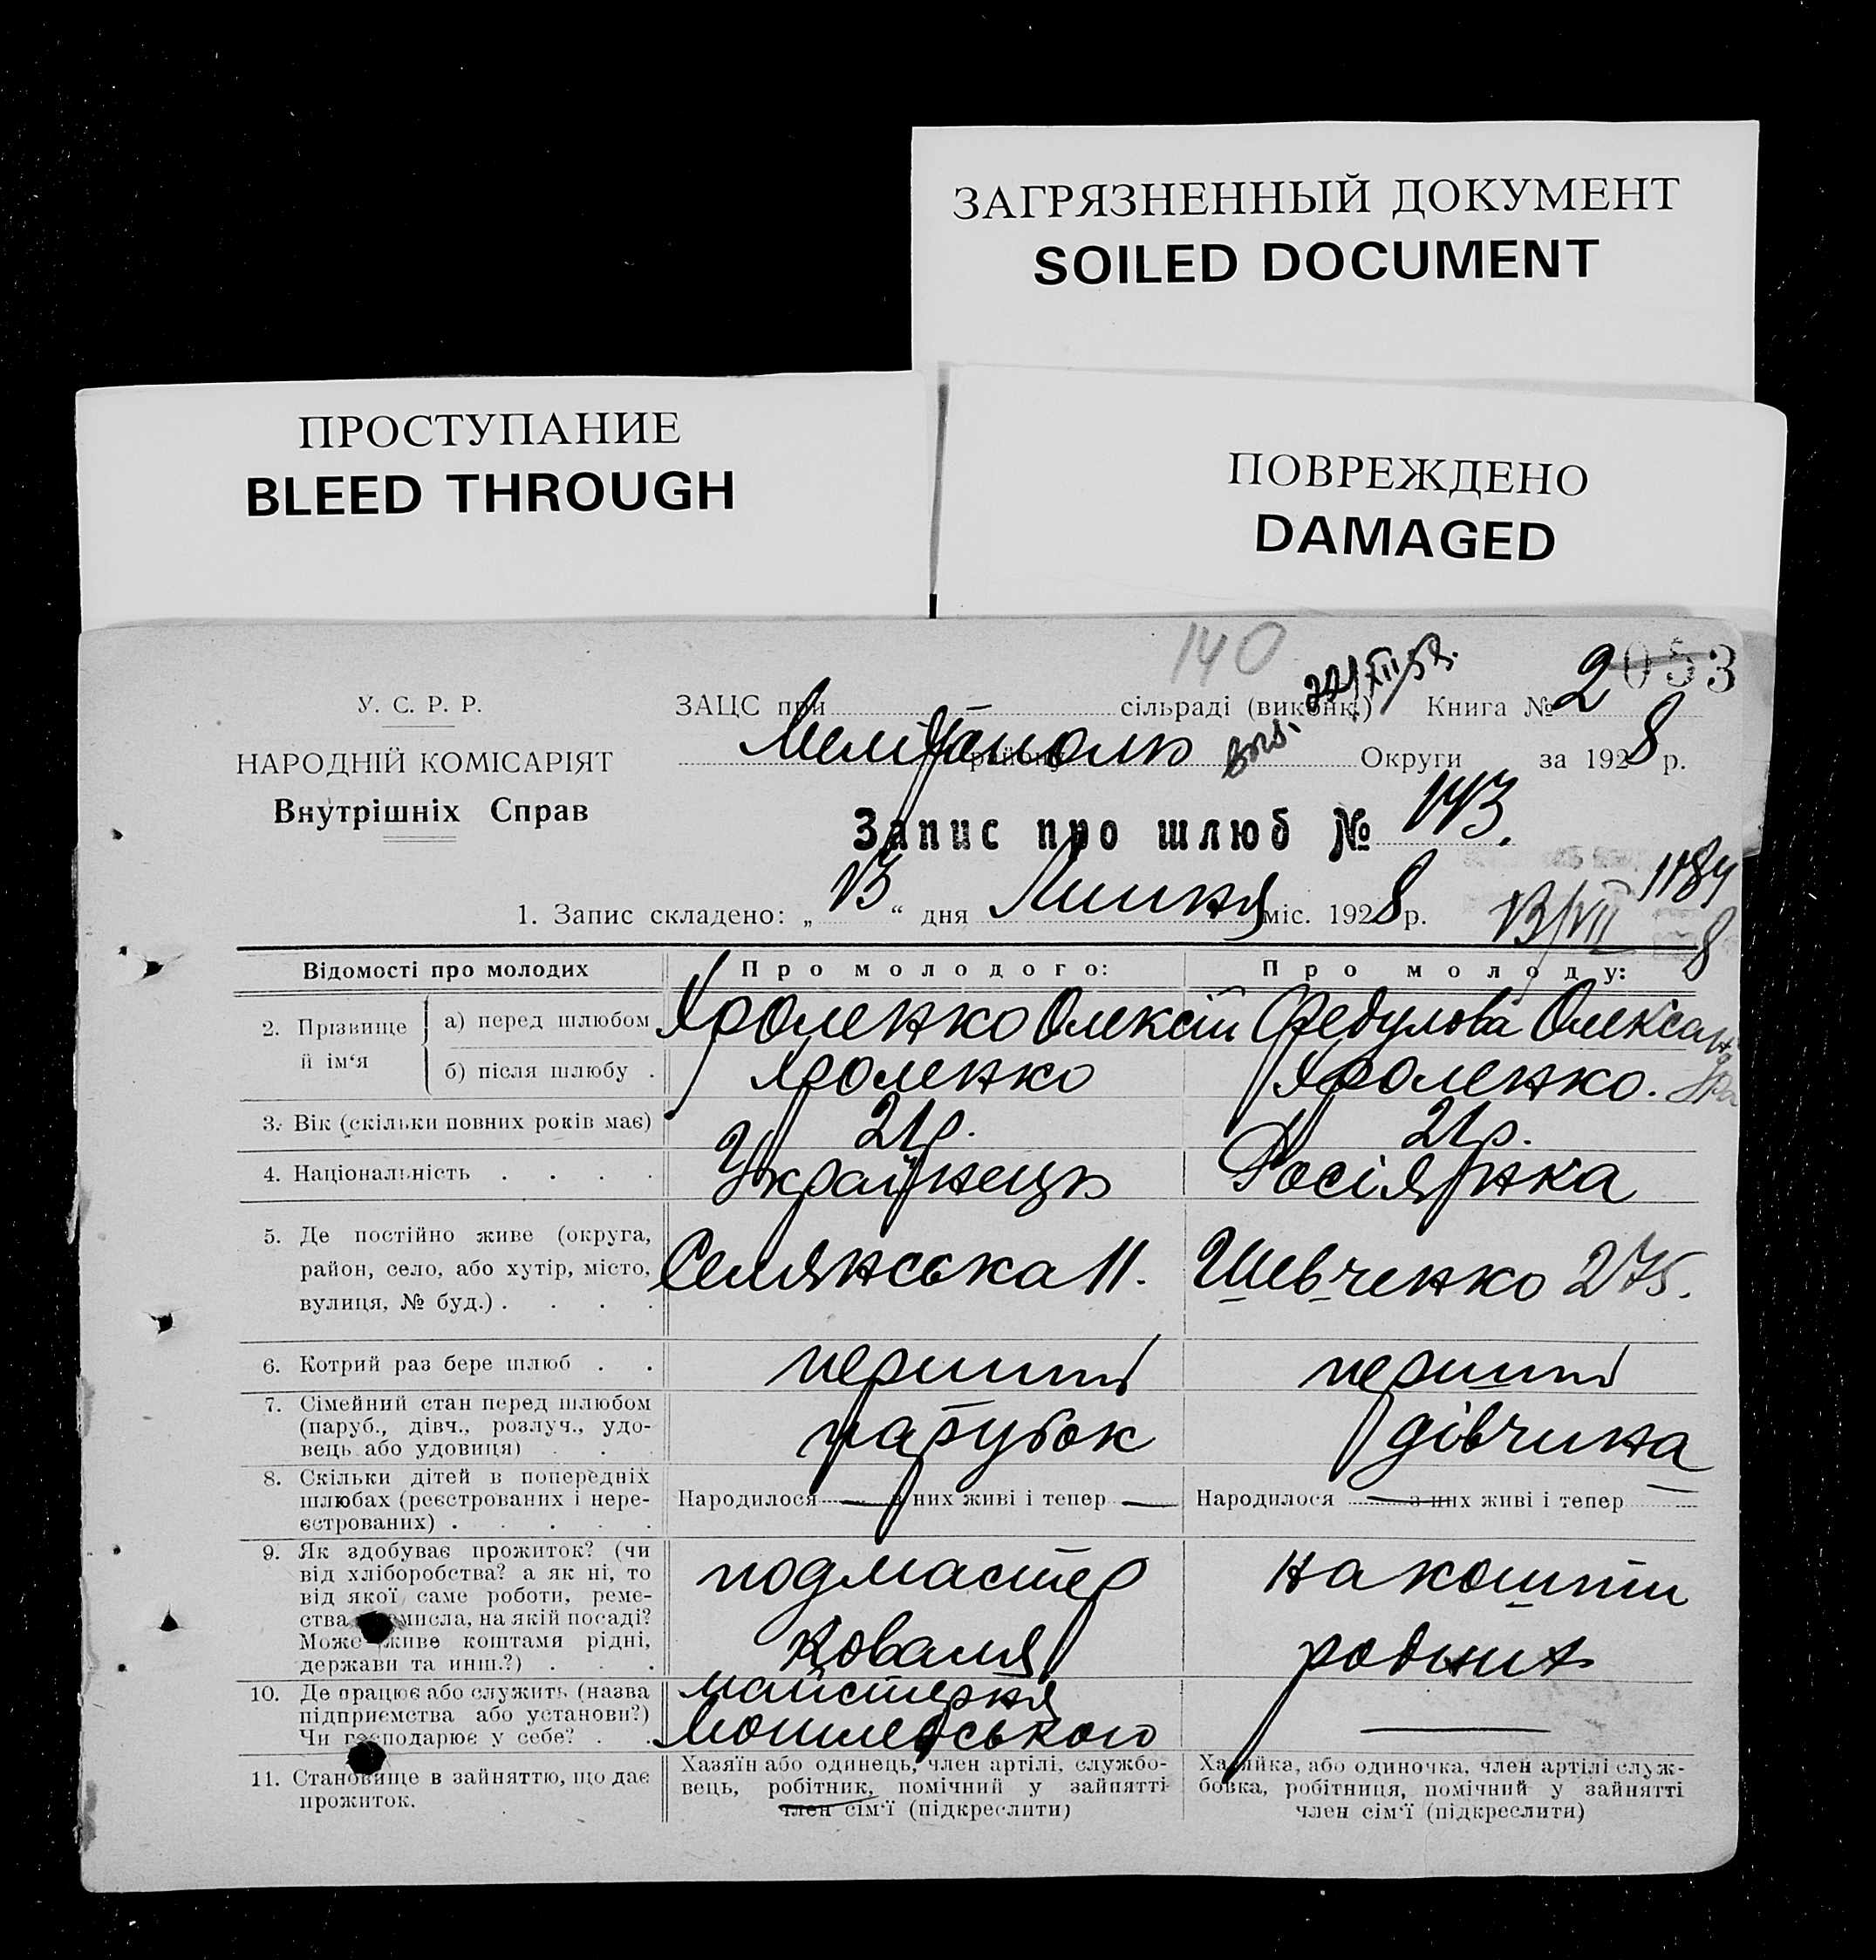 ЗАГРЯЗНЕННЫЙ ДОКУМЕНТ
SOILED DOCUMENT
ПРОСТУПАНИЕ
BLEED THROUGH
ПОВРЕЖДЕНО
DAMAGED
140
053
У. С. Р. Р.
НАРОДНІЙ КОМІСАРІЯТ
Внутрішніх Справ
ЗАЦС при сільраді (виконк.) Книга № 2
Мелітополь району Округи за 1928 р.
Запис про шлюб № 143.
1184
1. Запис складено: „13“ дня Липня міс. 1928 р.
13/VII 8
Відомості про молодих Про молодого: Про молоду:
2. Прізвище й ім'я
а) перед шлюбом Яроленко Олексій Федулова Олександра
б) після шлюбу Яроленко Яроленко.
3. Вік (скільки повних років має) 21р. 21р.
4. Національність Українець Росіянка
5. Де постійно живе (округа,
район, село, або хутір, місто,
вулиця, № буд.) Селянська 11. Шевченко 275.
6. Котрий раз бере шлюб перший перший
7. Сімейний стан перед шлюбом
(паруб., дівч., розлуч., удо-
вець або удовиця) парубок дівчина
8. Скільки дітей в попередніх
шлюбах (реєстрованих і нере-
єстрованих) Народилося — з них живі і тепер — Народилося — з них живі і тепер —
9. Як здобуває прожиток? (чи
від хліборобства? а як ні, то
від якої саме роботи, реме-
ства, промисла, на якій посаді?
Може живе коштами рідні,
держави та инш.?)
подмастер
Коваля
на кошти
родних
10. Де працює або служить (назва
підприємства або установи?)
Чи господарює у себе?
майстерня
—
11. Становище в зайняттю, що дає
прожиток.
Хазяїн або одинець, член артілі, службо-
вець, робітник, помічний у зайнятті
член сім'ї (підкреслити)
Хазяйка, або одиночка, член артілі служ-
бовка, робітниця, помічний у зайнятті
член сім'ї (підкреслити)